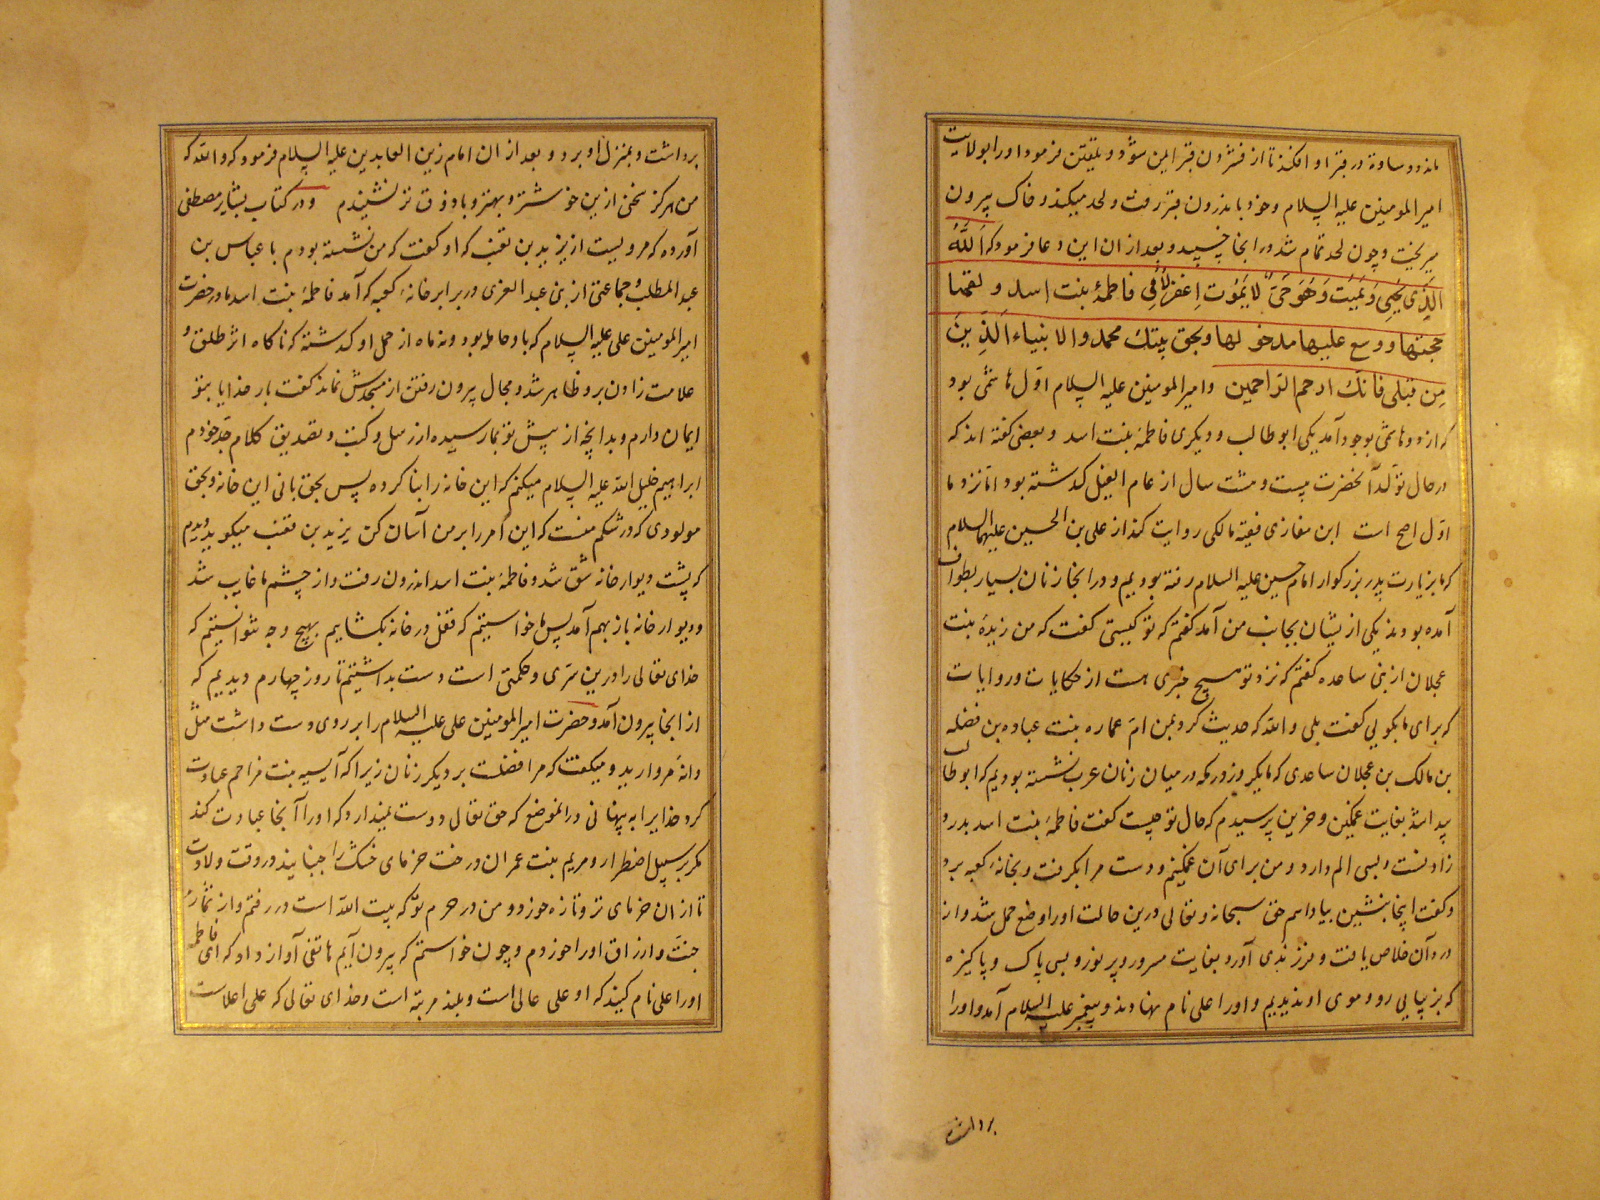 ماند و وساوة در قبر او افکند تا از فشردن قبر ایمن شود و بتلقین فرمود او را بولایت
امیرالمومنین علیه السلام وخود باندرون قبر رفت ولحد میکند و خاک بیرون
میریخت و چون لحد تمام شد در انجا خسپید و بعد از ان این دعا فرمود که اَللّهُ
الَّذِی یُحیِی وَ یُمیتُ وَ هُوَ حَیٌّ لا یَمُوت اِغفِر لِاُمِّی فاطمهٔ بنت اسد و لقنها
حجتها و وسع علیها مدخولها وبحق نبیک محمد والانبیاء الَّذِینَ
مِن قبلی فانَّک ارحم الرّاحمین وامیرالمومنین علیه السلام اوّل هاشمی بود
که از دو هاشمی بوجود آمد یکی ابوطالب و دیگری فاطمهٔ بنت اسد و بعضی گفته اند که
در حال تولّد آنحضرت بیست و هشت سال از عام الفیل گذشته بود امّا نزد ما
اوّل اصح است ابن مغازی فقیه مالکی روایت کند از علی بن الحسین علیهما السلام
که ما بزیارت پدر بزرگوار امام حسین علیه السلام رفته بودیم و در انجا زنان بسیار بطواف
آمده بودند یکی از یشان بجانب من آمد گفتم که تو کیستی گفت که من زیدهٔ بنت
عجلان از بنی ساعده گفتم که نزد تو هیچ خبری هست از حکایات و روایات
که برای ما بگویی گفت بلی والله که حدیث کرد بمن امّ عماره بنت عباده بن فضله
بن مالک بن عجلان ساعدی که ما یکروز در مکه در میان زنان عرب نشسته بودیم که ابوطالب
پیدا شد بغایت غمگین و حزین پرسیدم که حال تو چیست گفت فاطمهٔ بنت اسد بدرد
زادنست و بسی الم دارد و من برای آن غمگینم و دست مرا بگرفت و بخانهٔ کعبه برد
و گفت اینجا بنشین بیاد اسم حق سبحانه و تعالی درین حالت او را وضع حمل شد و از
درد آن خلاص یافت و فرزندی آورد بغایت مسرور و پر نور و بس پاک و پاکیزه
که بزیبایی رو و موی او ندیدیم و او را علی نام نهادند و پیغمبر علیه السلام آمد و او را
برداشت
برداشت و بمنزل او برد و بعد از ان امام زین العابدین علیه السلام فرمود که والله که
من هرگز سخن ازین خوشتر و بهتر و با ذوق تر نشنیدم و در کتاب بشایر مصطفی
آورده که مرویست از یزید بن قعنب که او گفت که من نشسته بودم با عباس بن
عبد المطلب و جماعتی از بنی عبد العزی در برابر خانهٔ کعبه که آمد فاطمهٔ بنت اسد مادر حضرت
امیرالمومنین علی علیه السلام که باو حامله بود و نه ماه از حمل او گذشته که ناگاه اثر طلق و
علامت زادن برو ظاهر شد و مجال بیرون رفتن از مسجدش نماند گفت بار خدایا بتو
ایمان دارم و بدانچه از پیش تو بما رسیده از رسل و کتب و تصدیق کلام جدّ خودم
ابراهیم خلیل الله علیه السلام میکنم که این خانه را بنا کرده پس بحق بانی این خانه و بحق
مولودی که در شکم منست که این امر را بر من آسان کن یزید بن قعنب میگوید دیدم
که پشت دیوار خانه شق شد و فاطمهٔ بنت اسد اندرون رفت و از چشم ما غایب شد
و دیوار خانه باز بهم آمد پس ما خواستیم که قفل در خانه بکشایم بهیچ وجه نتوانستیم که
خدای تعالی را درین سرّی و حکمتی است دست بداشتیم تا روز چهارم دیدیم که
از انجا بیرون آمد و حضرت امیرالمومنین علی علیه السلام را بر روی دست داشت مثل
دانهٔ مروارید و میگفت که مرا فضلست بر دیگر زنان زیرا که آسیه بنت مزاحم عبادت
کرد خدایرا به پنهانی در الموضع که حق تعالی دوست نمیدارد که او را آنجا عبادت کنند
مگر بر سبیل اضطرار و مریم بنت عمران درخت خرمای خشک را جنبانید در وقت ولادت
تا از ان خرمای تر و تازه خورد و من در حرم تو که بیت الله است در رفتم و از ثمارِ
جنّت و ارزاق او را خوردم و چون خواستم که بیرون آیم هاتفی آواز داد که ای فاطمه
او را علی نام کنید که او علی عالی است و بلند مرتبه است و خدای تعالی که علی اعلاست